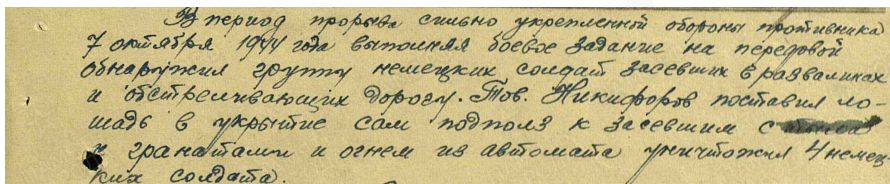 В период прорыва сильно укрепленной обороны противника
7 октября 1944 года выполняя боевое задание на передовой
обнаружил группу немецких солдат засевших в развалинах
и обстреливающих дорогу. Тов. Никифоров поставил ло-
шадь в укрытие сам подполз к засевшим с тыла
и гранатами и огнем из автомата уничтожил 4 немец-
ких солдата.